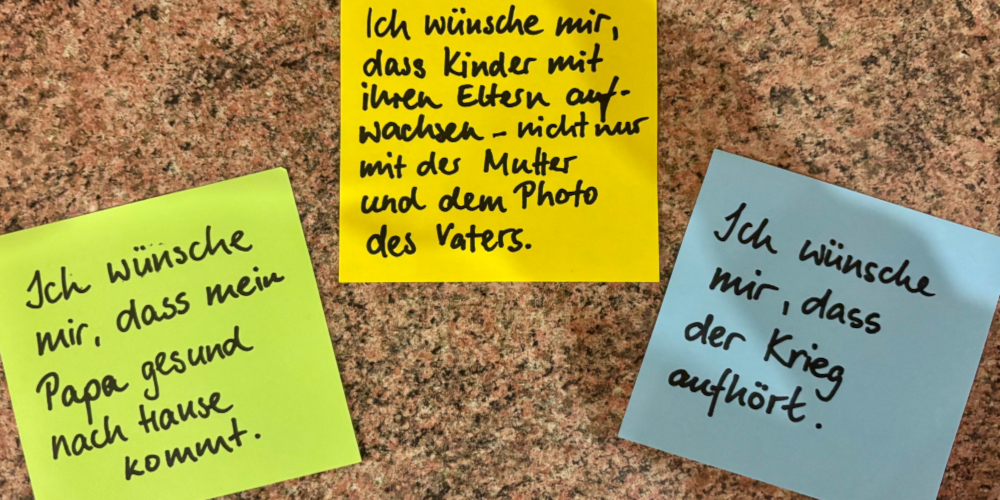 Ich wünsche
mir, dass mein
Papa gesund
nach Hause
kommt.
Ich wünsche mir,
dass Kinder mit
ihren Eltern auf-
wachsen - nicht nur
mit der Mutter
und dem Photo
des Vaters.
Ich wünsche
mir, dass
der Krieg
aufhört.